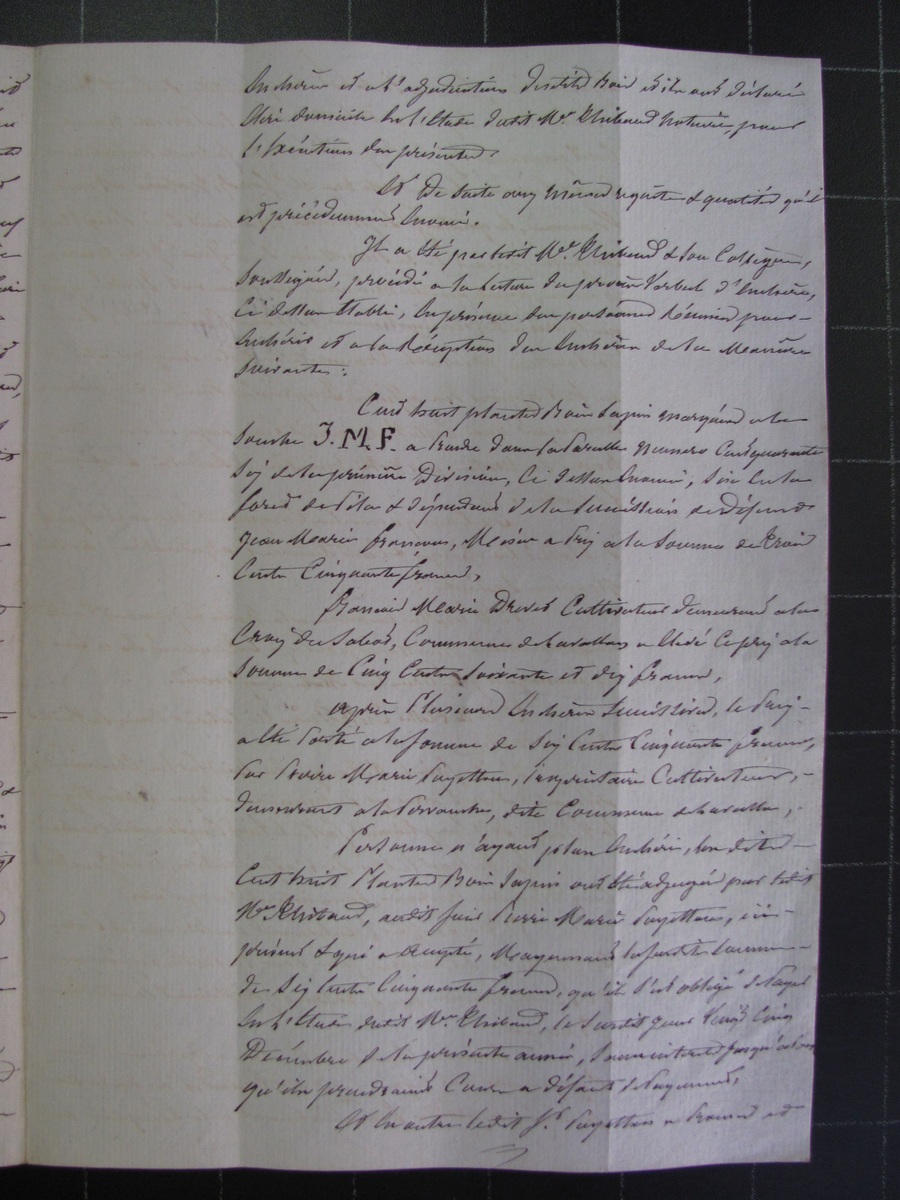 Enchère et à l'adjudication desdits Bois et ils ont déclaré
Elire domicile en l'Etude dudit Me. Thibaud Notaire pour
l'Exécution des présentes.
Et De suite aux mêmes requête & qualités qu'il
est précédemment Enoncé.
Il a été par ledit Me. Thibaud & son Collègue,
Soussignés, procédé à la lecture du procès Verbal d'Enchère,
Ci dessus Etabli, En présence des personnes Réunies pour
Enchérir et à la Réception des Enchères de la Manière
Suivante:
Cent huit plantes Bois Sapin marquées à la
Souche J. M. F. à prendre dans la parcelle Numéro Cent quarante
Six de la première Division, Ci dessus Enoncée, Sise En la
forêt de & dépendant de la Succession de Défunt
Jean Marie françois, Mises à Prix à la Somme de Trois
Cents Cinquante francs,
François Marie Cultivateur demeurant à la
Croix du Sabot, Commune de a Elevé Ce prix à la
Somme de Cinq Cents Soixante et dix francs,
après Plusieurs Enchères Successives, le Prix
a été Porté à la Somme de Six Cents Cinquante francs,
Par Pierre Marie Propriétaire Cultivateur,
demeurant à la dite Commune de
Personne n'ayant plus Enchéri, les dites
Cent huit Plantes Bois Sapin ont été adjugées par ledit
Me Thibaud, audit Sieur Pierre Marie ici
présent & qui a accepté, Moyennant la susdite Somme
de Six Cents Cinquante francs, qu'il s'est obligé de Payer
En l'Etude dudit Me. Thibaud, le Susdit jour Vingt Cinq
Décembre de la présente année, Sans intérêts jusqu'alors
qu'ils prendraient Cours à défaut de Payement,
Et En outre ledit Sr. a Promis et